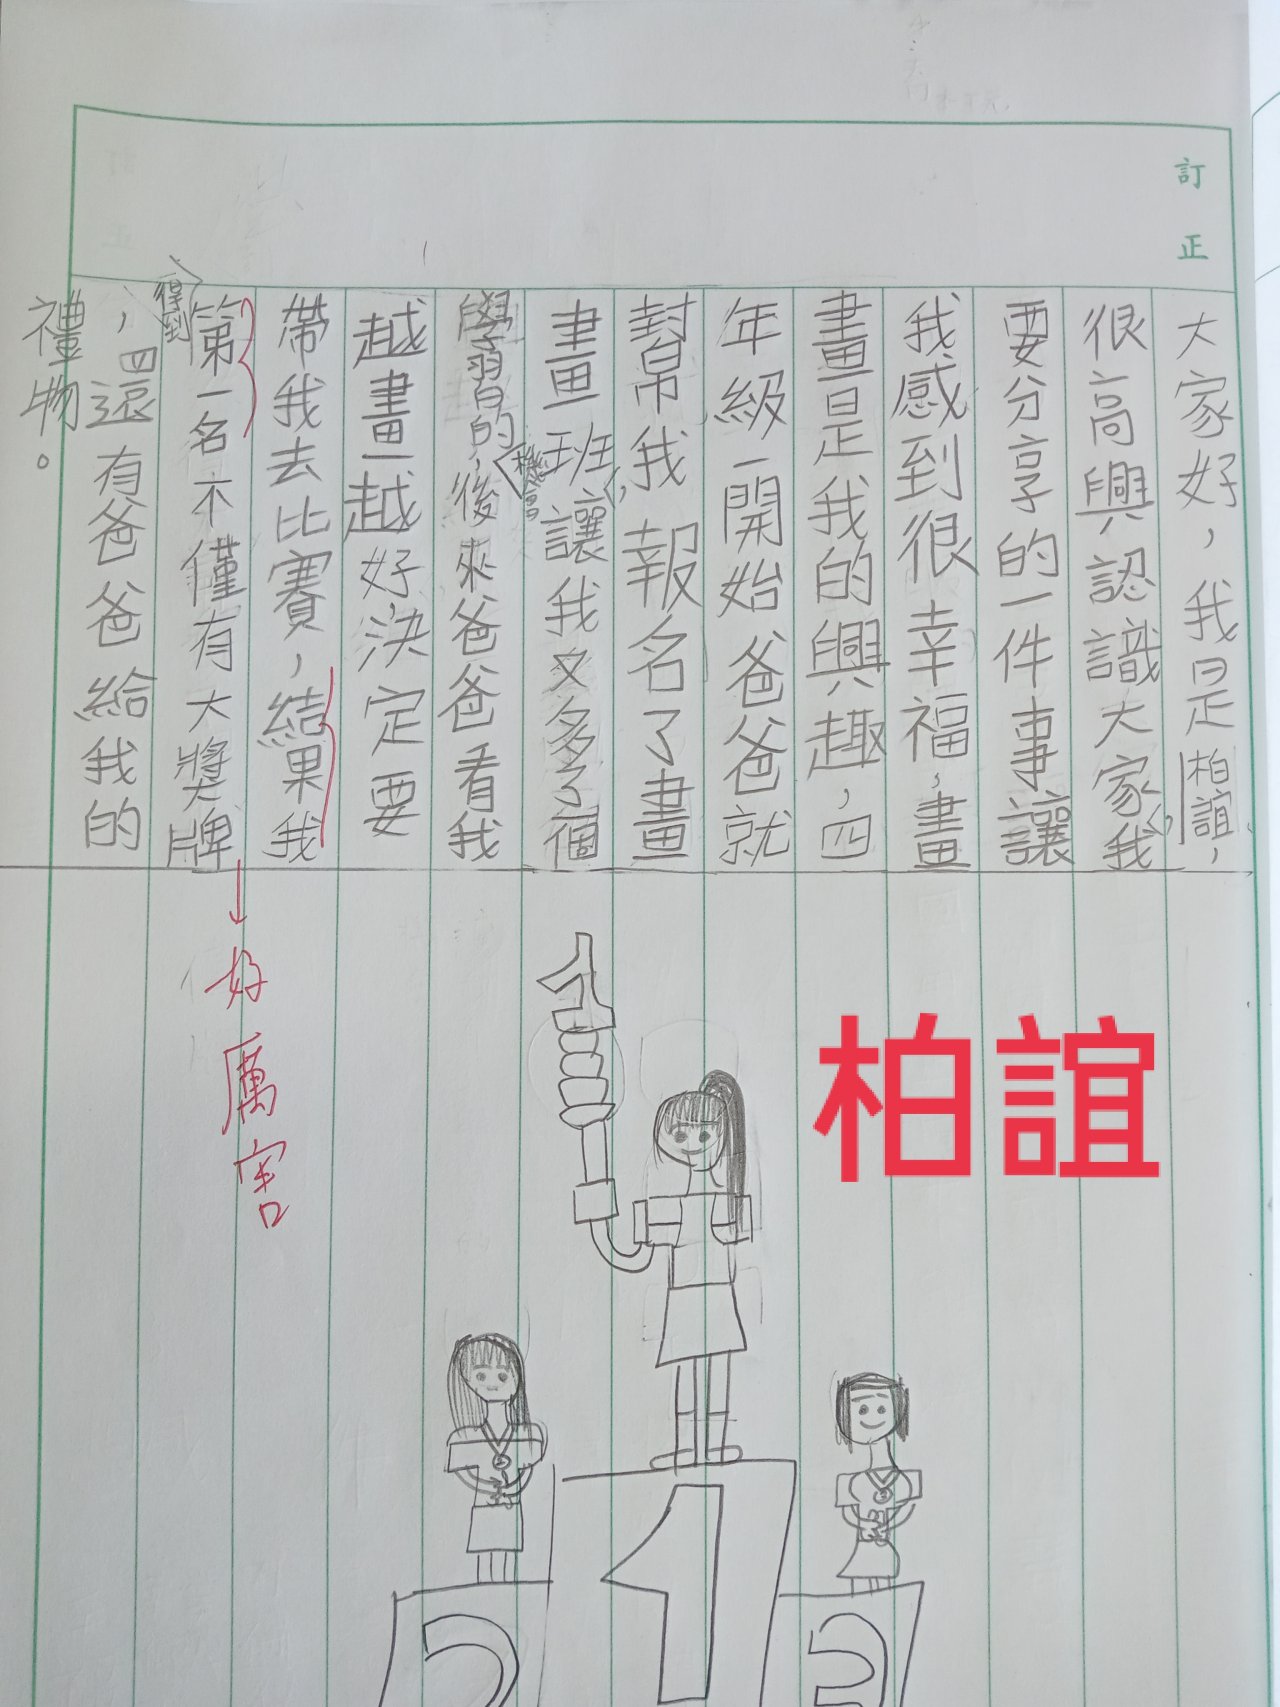 訂正
大家好，我是柏誼，
很高興認識大家，我
要分享的一件事讓
我感到很幸福，畫
畫是我的興趣，四
年級一開始爸爸就
幫我報名了畫
畫班，讓我又多了個
學習的機會，後來爸爸看我
越畫越好決定要
帶我去比賽，結果我
得到第一名不僅有大獎牌
，還有爸爸給我的
禮物。
好厲害
柏誼
1
2
3